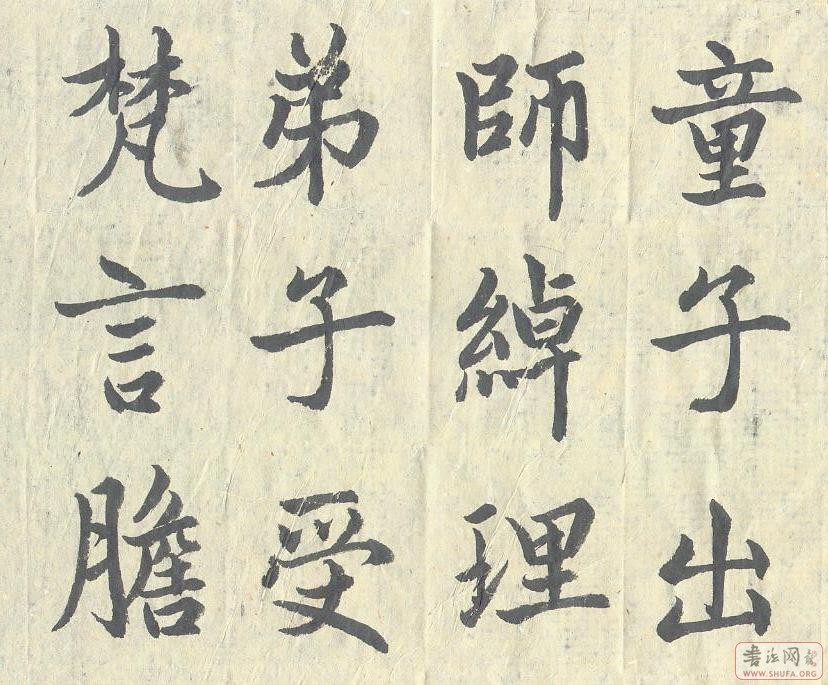 童子出
師綽理
弟子受
梵言膽
書法网
WWW.SHUFA.ORG